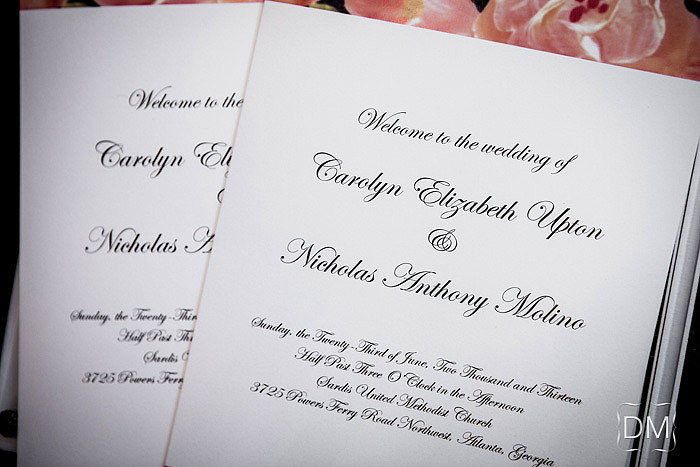 Welcome to the
Carolyn
Nicholas
Sunday, the Twenty-
Half Past
Sardis
3725 Powers Ferry
Welcome to the wedding of
Carolyn Elizabeth Upton
&
Nicholas Anthony Molino
Sunday, the Twenty-Third of June, Two Thousand and Thirteen
Half Past Three O'Clock in the Afternoon
Sardis United Methodist Church
3725 Powers Ferry Road Northwest, Atlanta, Georgia
DM